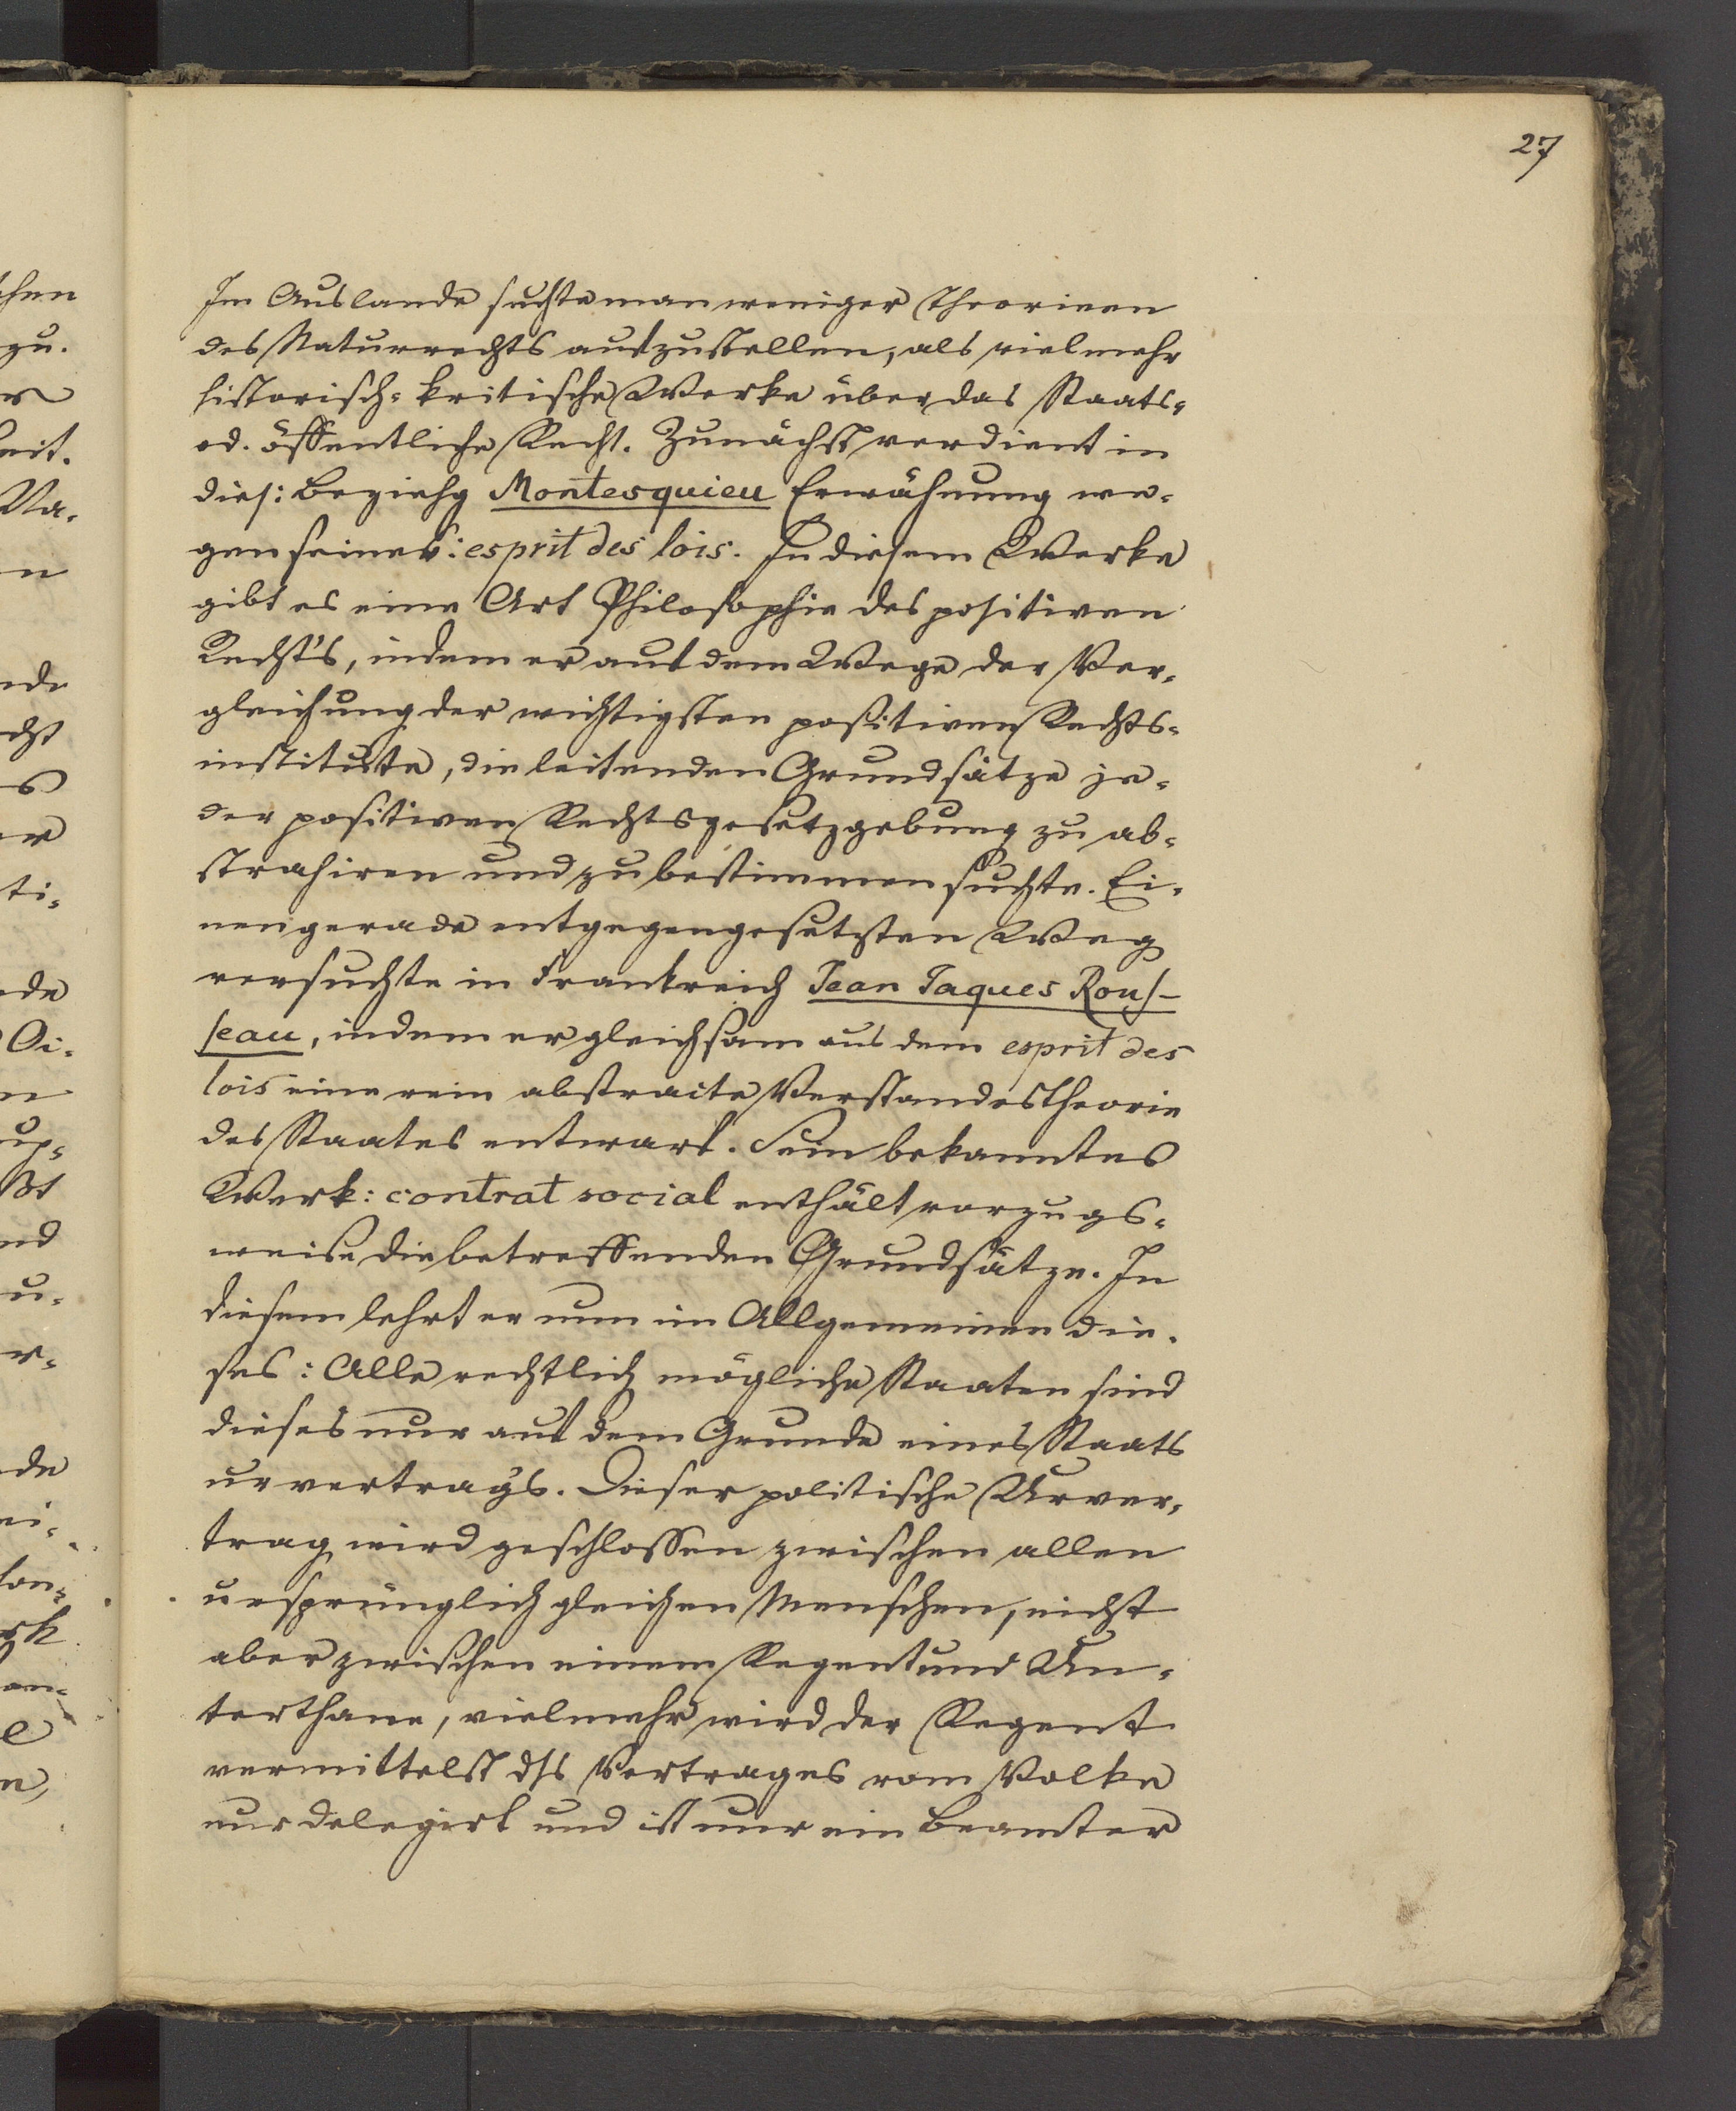 27
Im Auslande suchte man weniger Theorieen
des Naturrechts aufzustellen, als vielmehr
historisch-kritische Werke über das Staats-
od. öffentliche Recht. Zunächst verdient in
dies: Beziehg Montesquieu Erwähnung we-
gen seines: esprit des lois. In diesem Werke
gibt es eine Art Philosophie des positiven
Recht's, indem er auf dem Wege der Ver-
gleichung der wichtigsten positiven Rechts-
institute, die leitenden Grundsätze je-
der positiven Rechtsgesetzgebung zu ab-
strahiren und zu bestimmen suchte. Ei-
nen gerade entgegengesetzten Weg
versuchte in Frankreich Jean Jaques Rous-
seau, indem er gleichsam aus dem esprit des
lois eine rein abstracte Verstandestheorie
des Staates entwarf. Sein bekanntes
Werk: contrat social enthält vorzugs-
weise die betreffenden Grundsätze. In
diesem lehrt er nun im Allgemeinen die-
ses: Alle rechtlich mögliche Staaten sind
dieses nur auf dem Grunde eines Staats
urvertrags. Dieser politische Urver-
trag wird geschlossen zwischen allen
ursprünglich gleichen Menschen, nicht
aber zwischen einem Regent und Un-
terthane, vielmehr wird der Regent
vermittelst dss Vertrages vom Volke
nur delegirt und ist nur ein Beamter